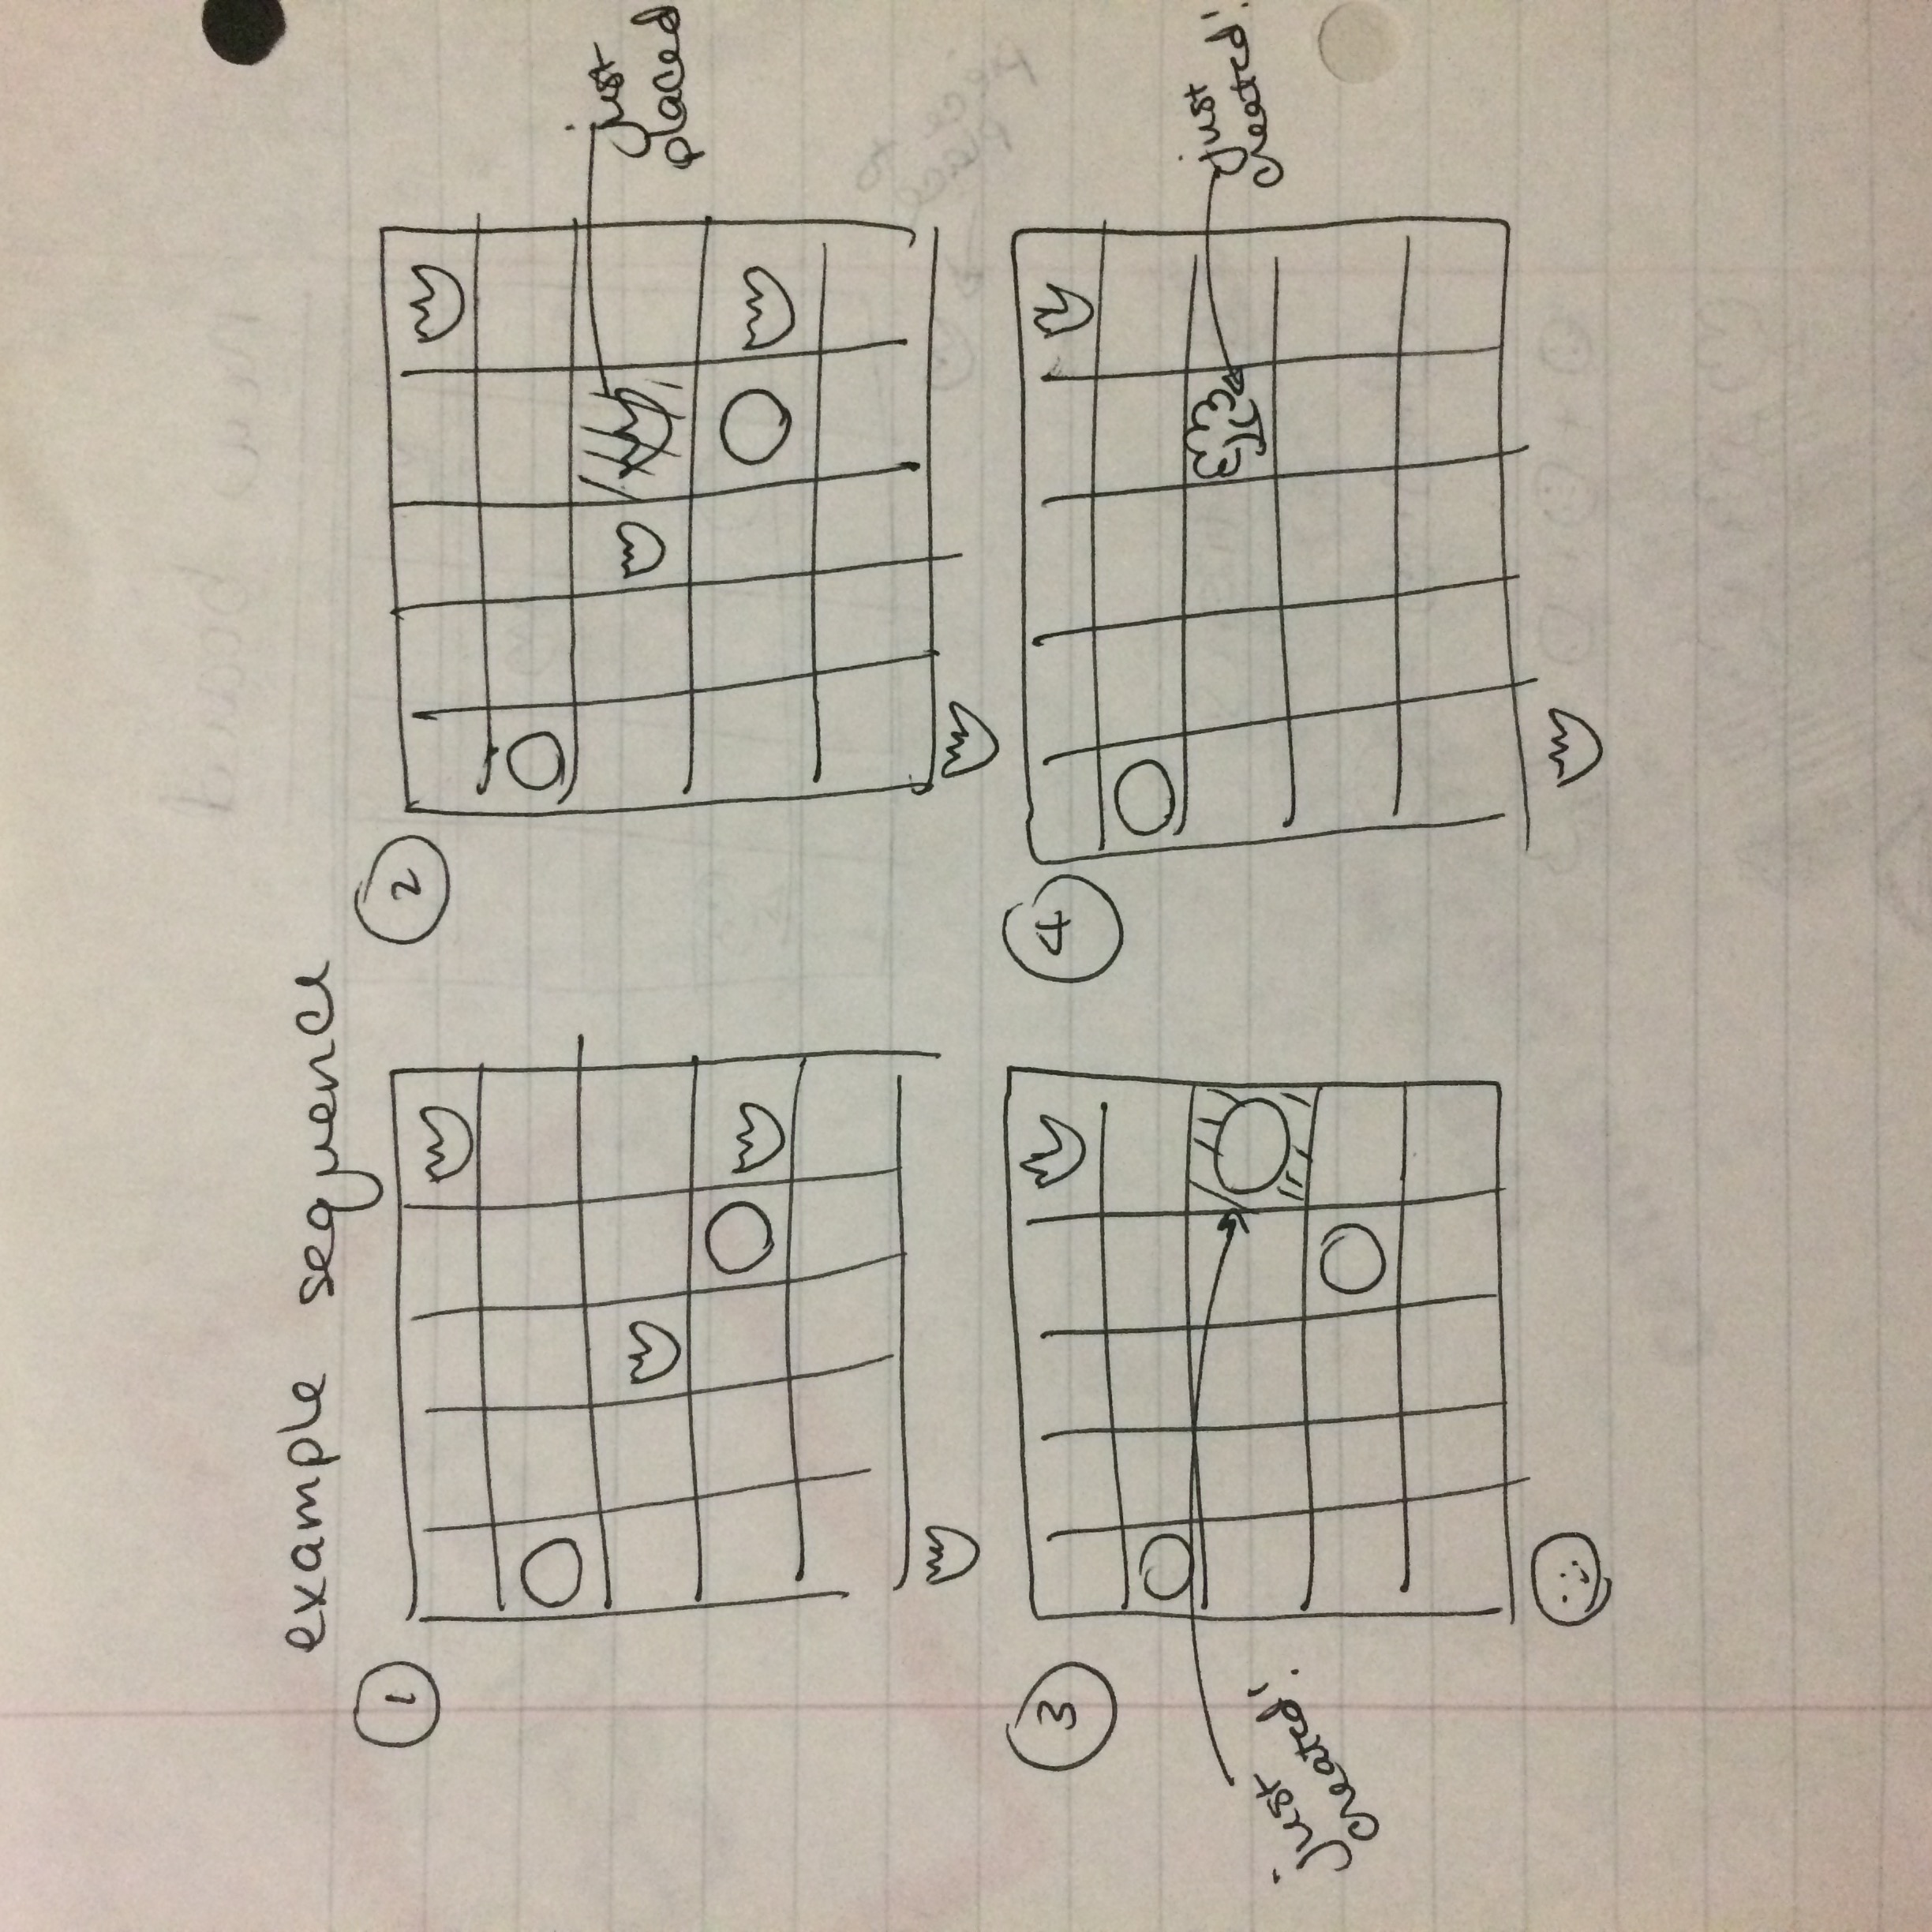 example sequence
1
2
just
placed
3
4
just
created!
just
created!